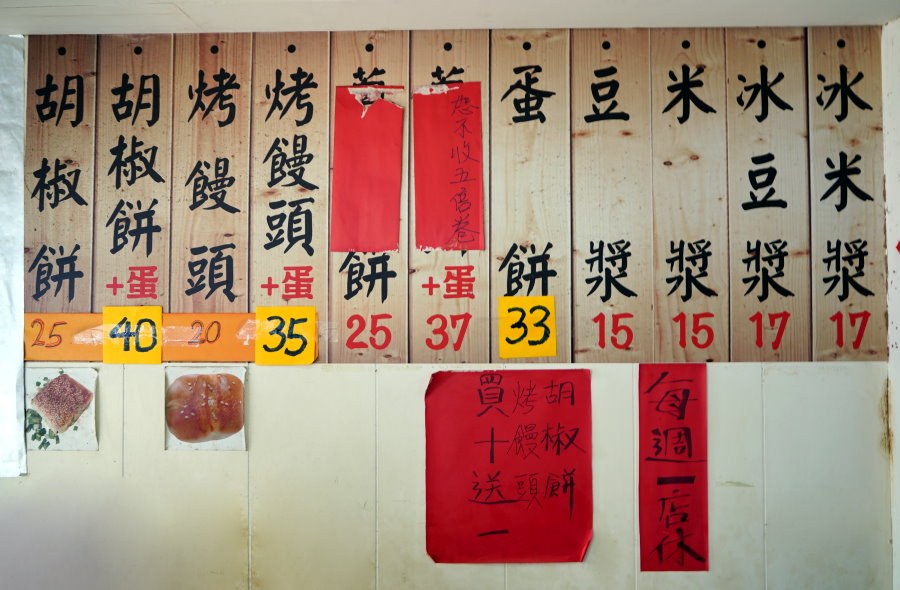 胡椒餅 25
胡椒餅+蛋 40
烤饅頭 20
烤饅頭+蛋 35
餅 25
+蛋 37
恕不收五倍卷
蛋餅 33
豆漿 15
米漿 15
冰豆漿 17
冰米漿 17
胡椒餅
烤饅頭
買十送一
每週一店休